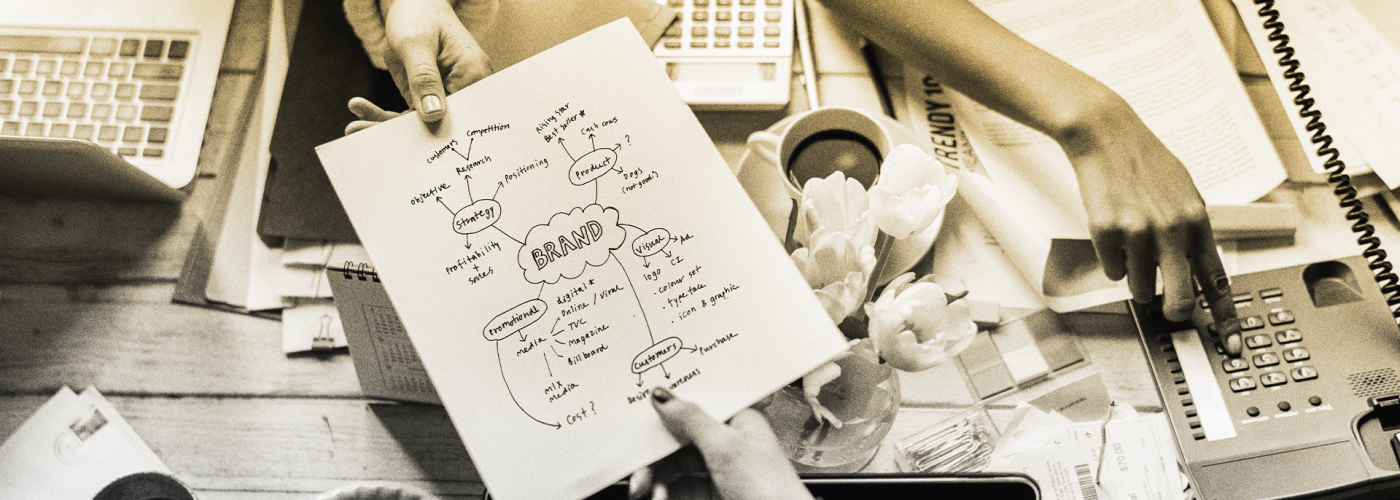 Competitors
customers
Research
Objective
Positioning
Strategy
Profitability
+
sales
Rising star
Best seller *
Cash cows
?
Product
Dogs
(not good)
BRAND
Visual
Ad
CI
logo
• colour set
• type face
• icon & graphic
Promotional
digital *
Online / Viral
TVC
media
Magazine
Billboard
Mix
media
Cost?
Customers
Purchase
TRENDY 10